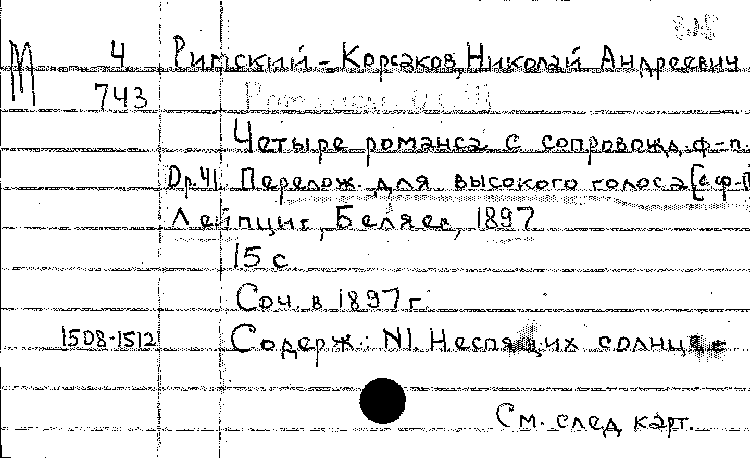 М 4 Римский-Корсаков, Николай Андреевич
743
Четыре романса с сопровожд. ф-п.
Op. 41. Перелож. для высокого голоса [с ф-п
Лейпциг, Беляев, 1897
15 с.
Соч. в 1897 г.
1508-1512 Содерж.: N1. Неспящих солнце
См. след карт.